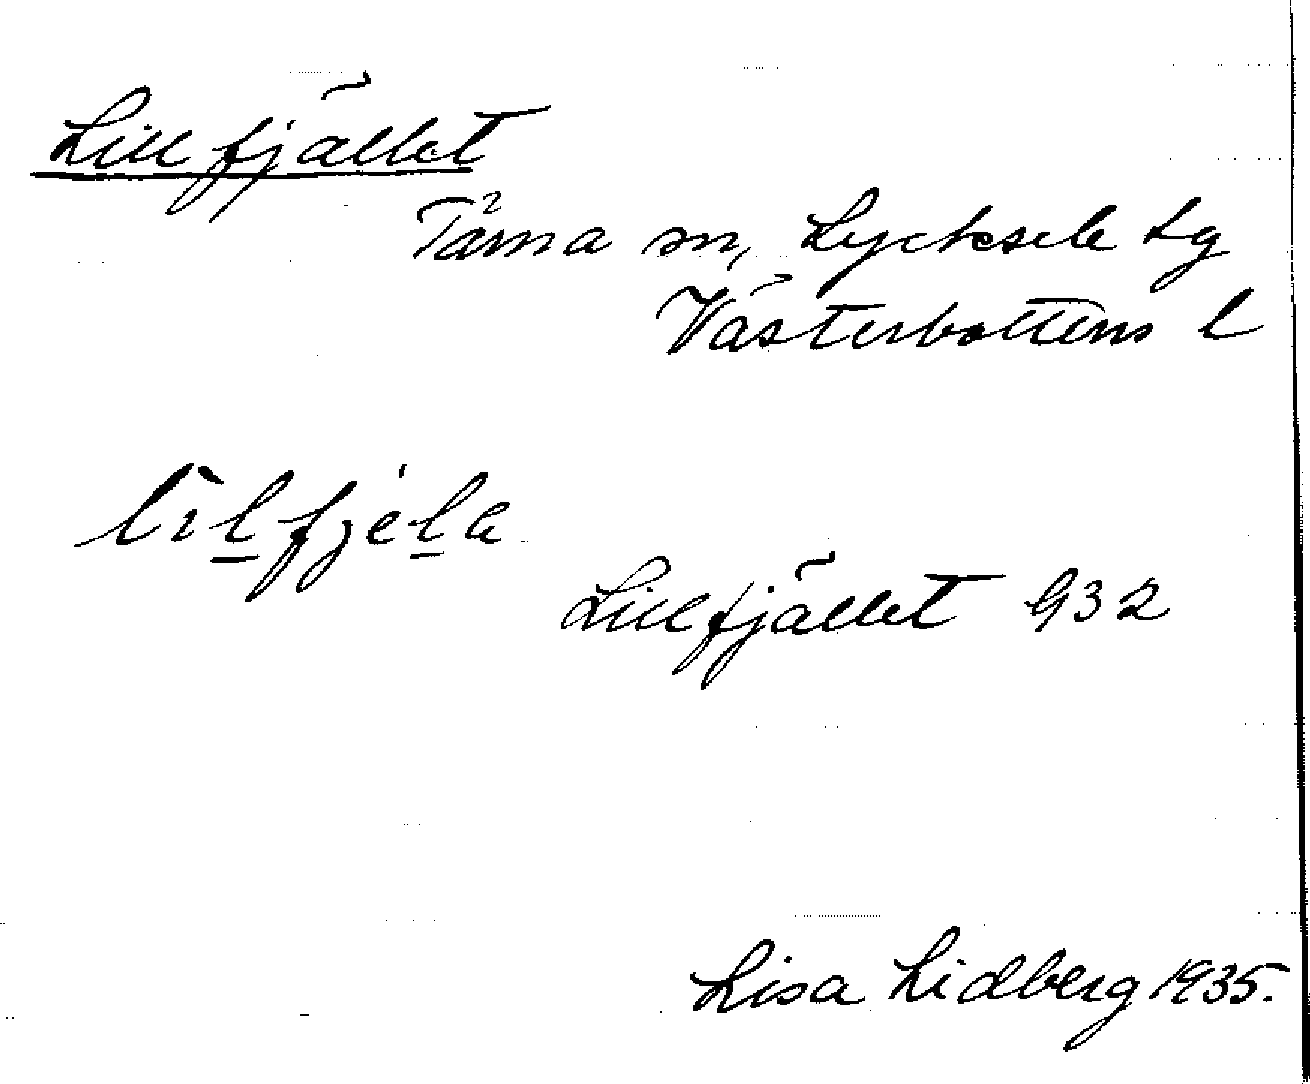 Lillfjället
Tärna sn, Lycksele lg
Västerbottens l
lìlfjéla
Lillfjället 932
Lisa Lidberg 1935.